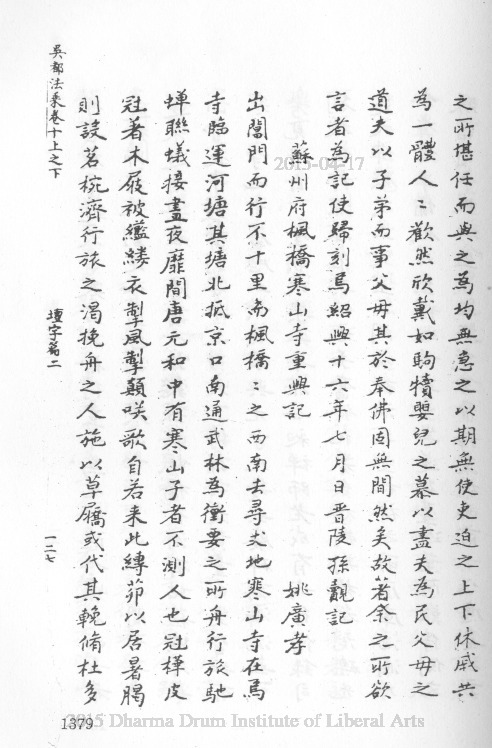 之所堪任而與之為均無怠之以期無使吏迫之上下休戚共
為一體人〻歡然欣戴如駒犢嬰兒之慕以盡夫為民父母之
道夫以子弟而事父母其於奉佛固無間然矣故著余之所欲
言者為記使歸刻焉紹興十六年七月日晋陵孫覿記
蘇州府楓橋寒山寺重興記
姚廣孝
出閶門而行不十里為楓橋〻之西南去尋丈地寒山寺在焉
寺臨運河塘其塘北抵京口南通武林為衝要之所舟行旅馳
蟬聯蟻接晝夜靡間唐元和中有寒山子者不測人也冠樺皮
冠著木屐被繿縷衣掣風掣顛咲歌自若来此縛茆以居暑暍
則設茗椀濟行旅之渴挽舟之人施以草屩或代其輓脩杜多
吳都法乘卷十上之下
壇宇篇二
一二七
1379
2015-04-17
2015 Dharma Drum Institute of Liberal Arts